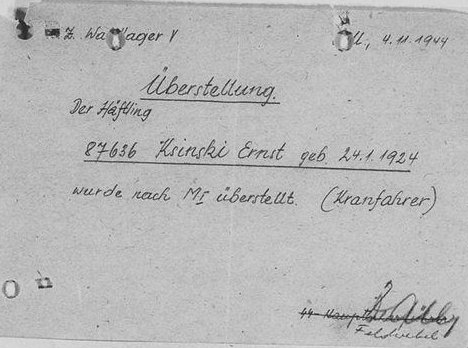 Z. Wa lager V
M, 4.11.1944
Überstellung.
Der Häftling
87636 Ksinski Ernst geb. 24.1.1924
wurde nach MI überstellt. (Kranfahrer)
O n
Feldwebel